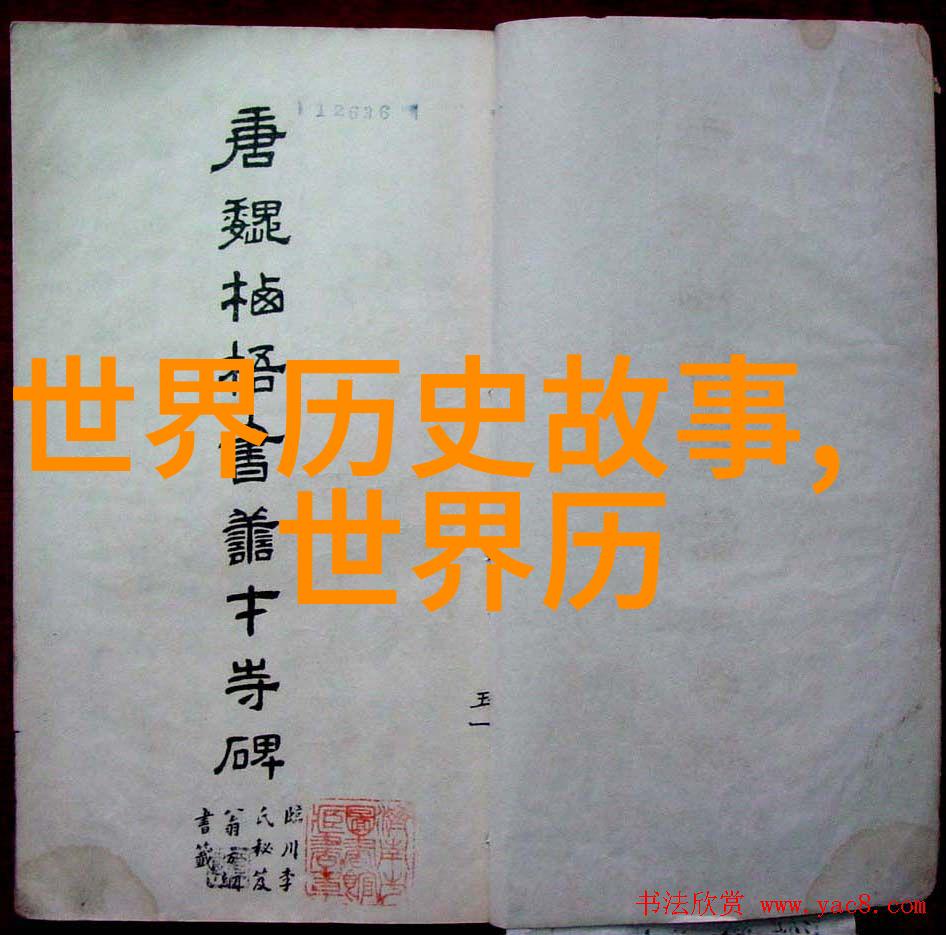 12636
唐魏栖梧書善才寺碑
臨川李
氏秘笈
翁方綱
書籤
世界历史故事,
世界历
五一
书法欣赏 www.yac8.com